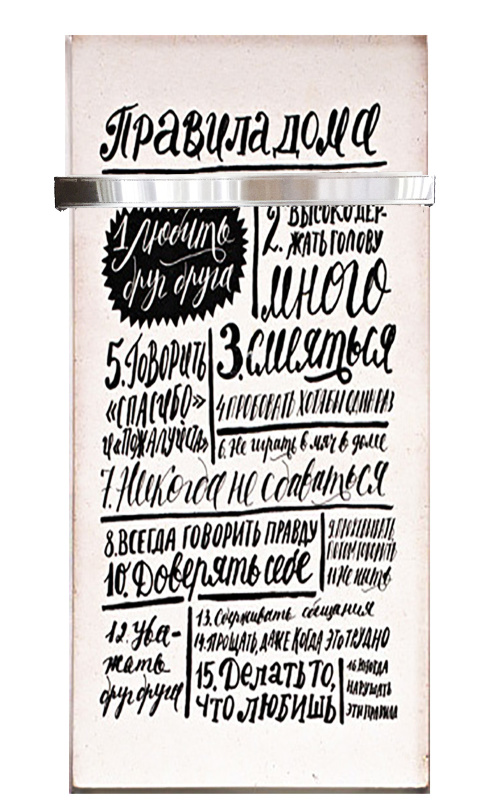 Правила дома
1 Любить
друг друга
2. высоко дер-
жать голову
много
3. смеяться
5. Говорить
«спасибо»
и «пожалуйста»
4 пробовать хотя бы один раз
6. Не играть в мяч в доме
7. Никогда не сдаваться
8. Всегда говорить правду
потом говорить
10. Доверять себе
11 Не ныть
12. Ува-
жать
друг друга
13. Сдерживать обещания
14. прощать, даже когда это трудно
15. Делать то,
что любишь
16. иногда
нарушать
эти правила